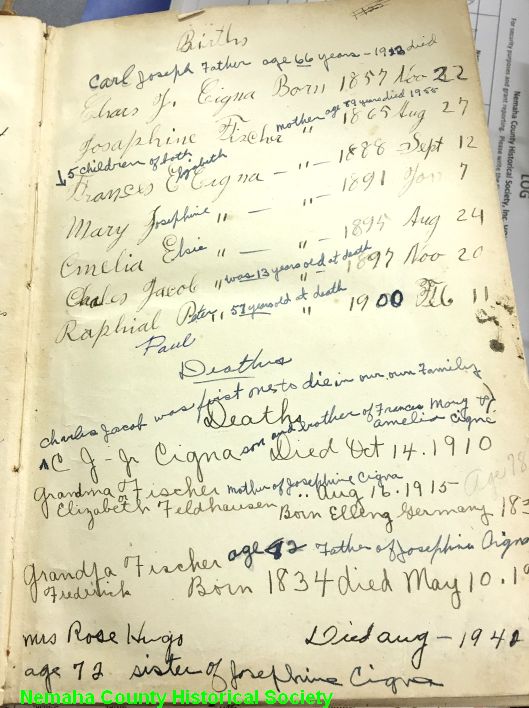 Births
Carl Joseph Father age 66 years - 1923 died
Chars J. Cigna Born 1857 Nov 22
mother age 89 years died 1955
Josaphine Fischer " 1865 Aug 27
↓ 5 children of both
Elizabeth
Frances E Cigna - " - 1888 Sept 12
Mary Josephine " - " 1891 Jan 7
Emelia Elsie " - " 1895 Aug 24
Chales Jacob " was 13 years old at death 1897 Nov 20
Raphial Peter " 57 years old at death " 1900 Feb 11
Paul
Deaths
Charles Jacob was first one to die in our own Family
Deaths
son and brother of Frances Mary &
amelia Cigna
C J - Jr Cigna Died Oct 14. 1910
Grandma Fischer mother of Josephine Cigna
or " Aug 16. 1915 - age 78
Elizabeth Feldhausen Born Elleng Germany 183
Grandfa Fischer age 72 Father of Josephine Cigna
Frederick Born 1834 died May 10. 19
Mrs Rose Hugo Died aug - 1942
age 72 sister of Josephine Cigna
Nemaha County Historical Society
For security purposes
and grant reporting. Please write the
Nemaha County Historical Society, Inc.
LOG